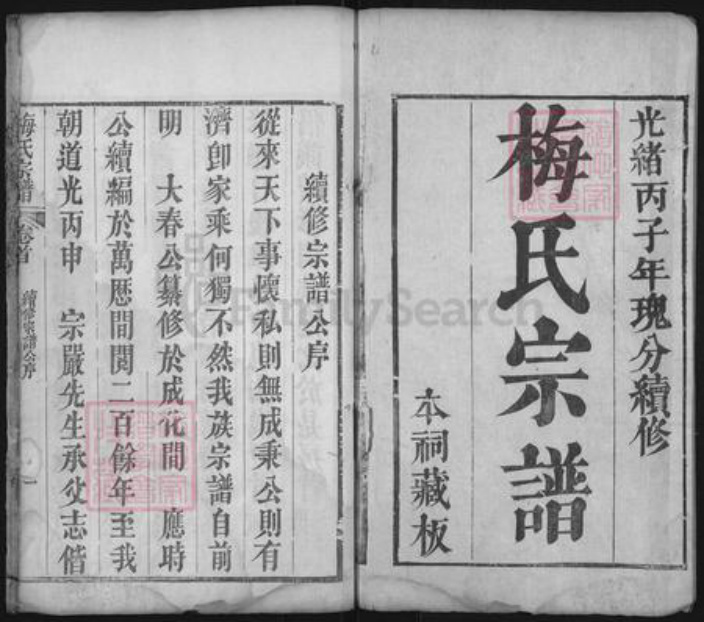 光緒丙子年瑰分續修
梅氏宗譜
本祠藏板
續修宗譜公序
從來天下事懷私則無成秉公則有
濟卽家乘何獨不然我族宗譜自前
明 大春公纂修於成化間 應時
公續編於萬歷間閱二百餘年至我
朝道光丙申 宗嚴先生承父志偕
梅氏宗譜 卷首 續修宗譜公序 一
FamilySearch